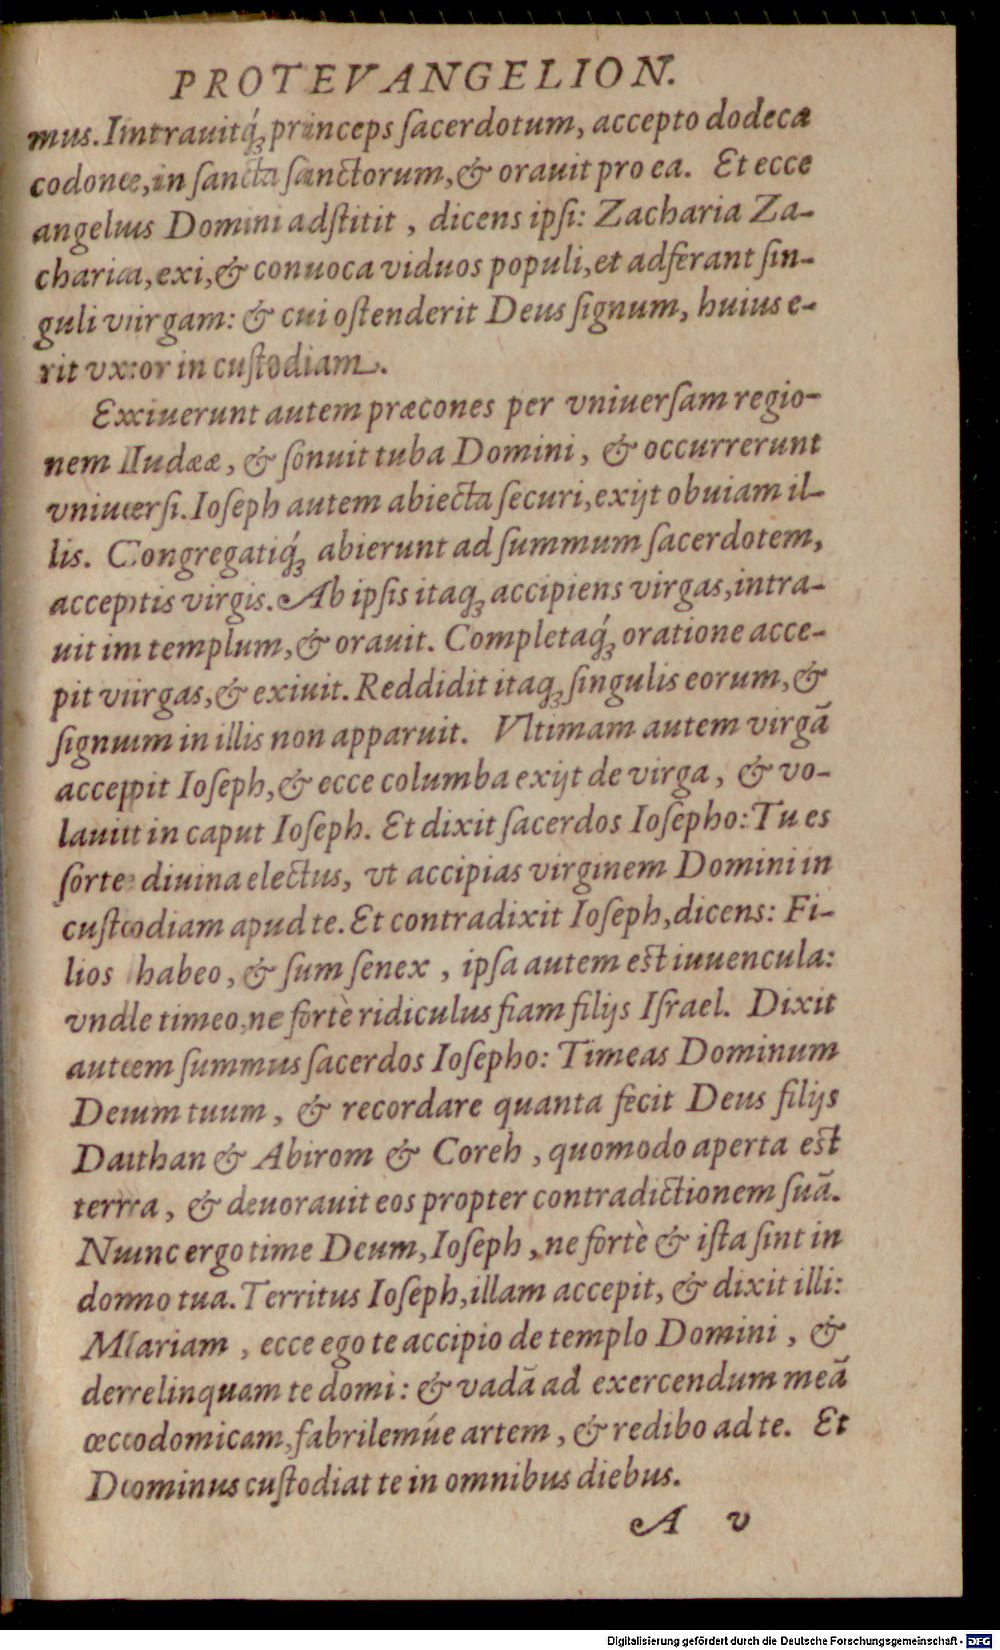 PROTEVANGELION.
mus. Intrauitq́ꝫ princeps ſacerdotum, accepto dodeca
codone, in ſancta ſanctorum, & orauit pro ea. Et ecce
angelus Domini adſtitit, dicens ipſi: Zacharia Za-
charia, exi, & conuoca viduos populi, et adferant ſin-
guli virgam: & cui oſtenderit Deus ſignum, huius e-
rit vxor in cuſtodiam.
Exiuerunt autem præcones per vniuerſam regio-
nem Iudææ, & ſonuit tuba Domini, & occurrerunt
vniuerſi. Ioſeph autem abiecta ſecuri, exijt obuiam il-
lis. Congregatiq́ꝫ abierunt ad ſummum ſacerdotem,
acceptis virgis. Ab ipſis itaqꝫ accipiens virgas, intra-
uit in templum, & orauit. Completaq́ꝫ oratione acce-
pit virgas, & exiuit. Reddidit itaqꝫ ſingulis eorum, &
ſignum in illis non apparuit. Vltimam autem virgã
accepit Ioſeph, & ecce columba exijt de virga, & vo-
lauit in caput Ioſeph. Et dixit ſacerdos Ioſepho: Tu es
ſorte diuina electus, vt accipias virginem Domini in
cuſtodiam apud te. Et contradixit Ioſeph, dicens: Fi-
lios habeo, & ſum ſenex, ipſa autem eſt iuuencula:
vnde timeo, ne fortè ridiculus fiam filijs Iſrael. Dixit
autem ſummus ſacerdos Ioſepho: Timeas Dominum
Deum tuum, & recordare quanta fecit Deus filijs
Dathan & Abirom & Coreh, quomodo aperta eſt
terra, & deuorauit eos propter contradictionem ſuã.
Nunc ergo time Deum, Ioſeph, ne fortè & iſta ſint in
domo tua. Territus Ioſeph, illam accepit, & dixit illi:
Mariam, ecce ego te accipio de templo Domini, &
derelinquam te domi: & vadã ad exercendum meã
œcodomicam, fabrilemúe artem, & redibo ad te. Et
Dominus cuſtodiat te in omnibus diebus.
A v
Digitalisierung gefördert durch die Deutsche Forschungsgemeinschaft - DFG